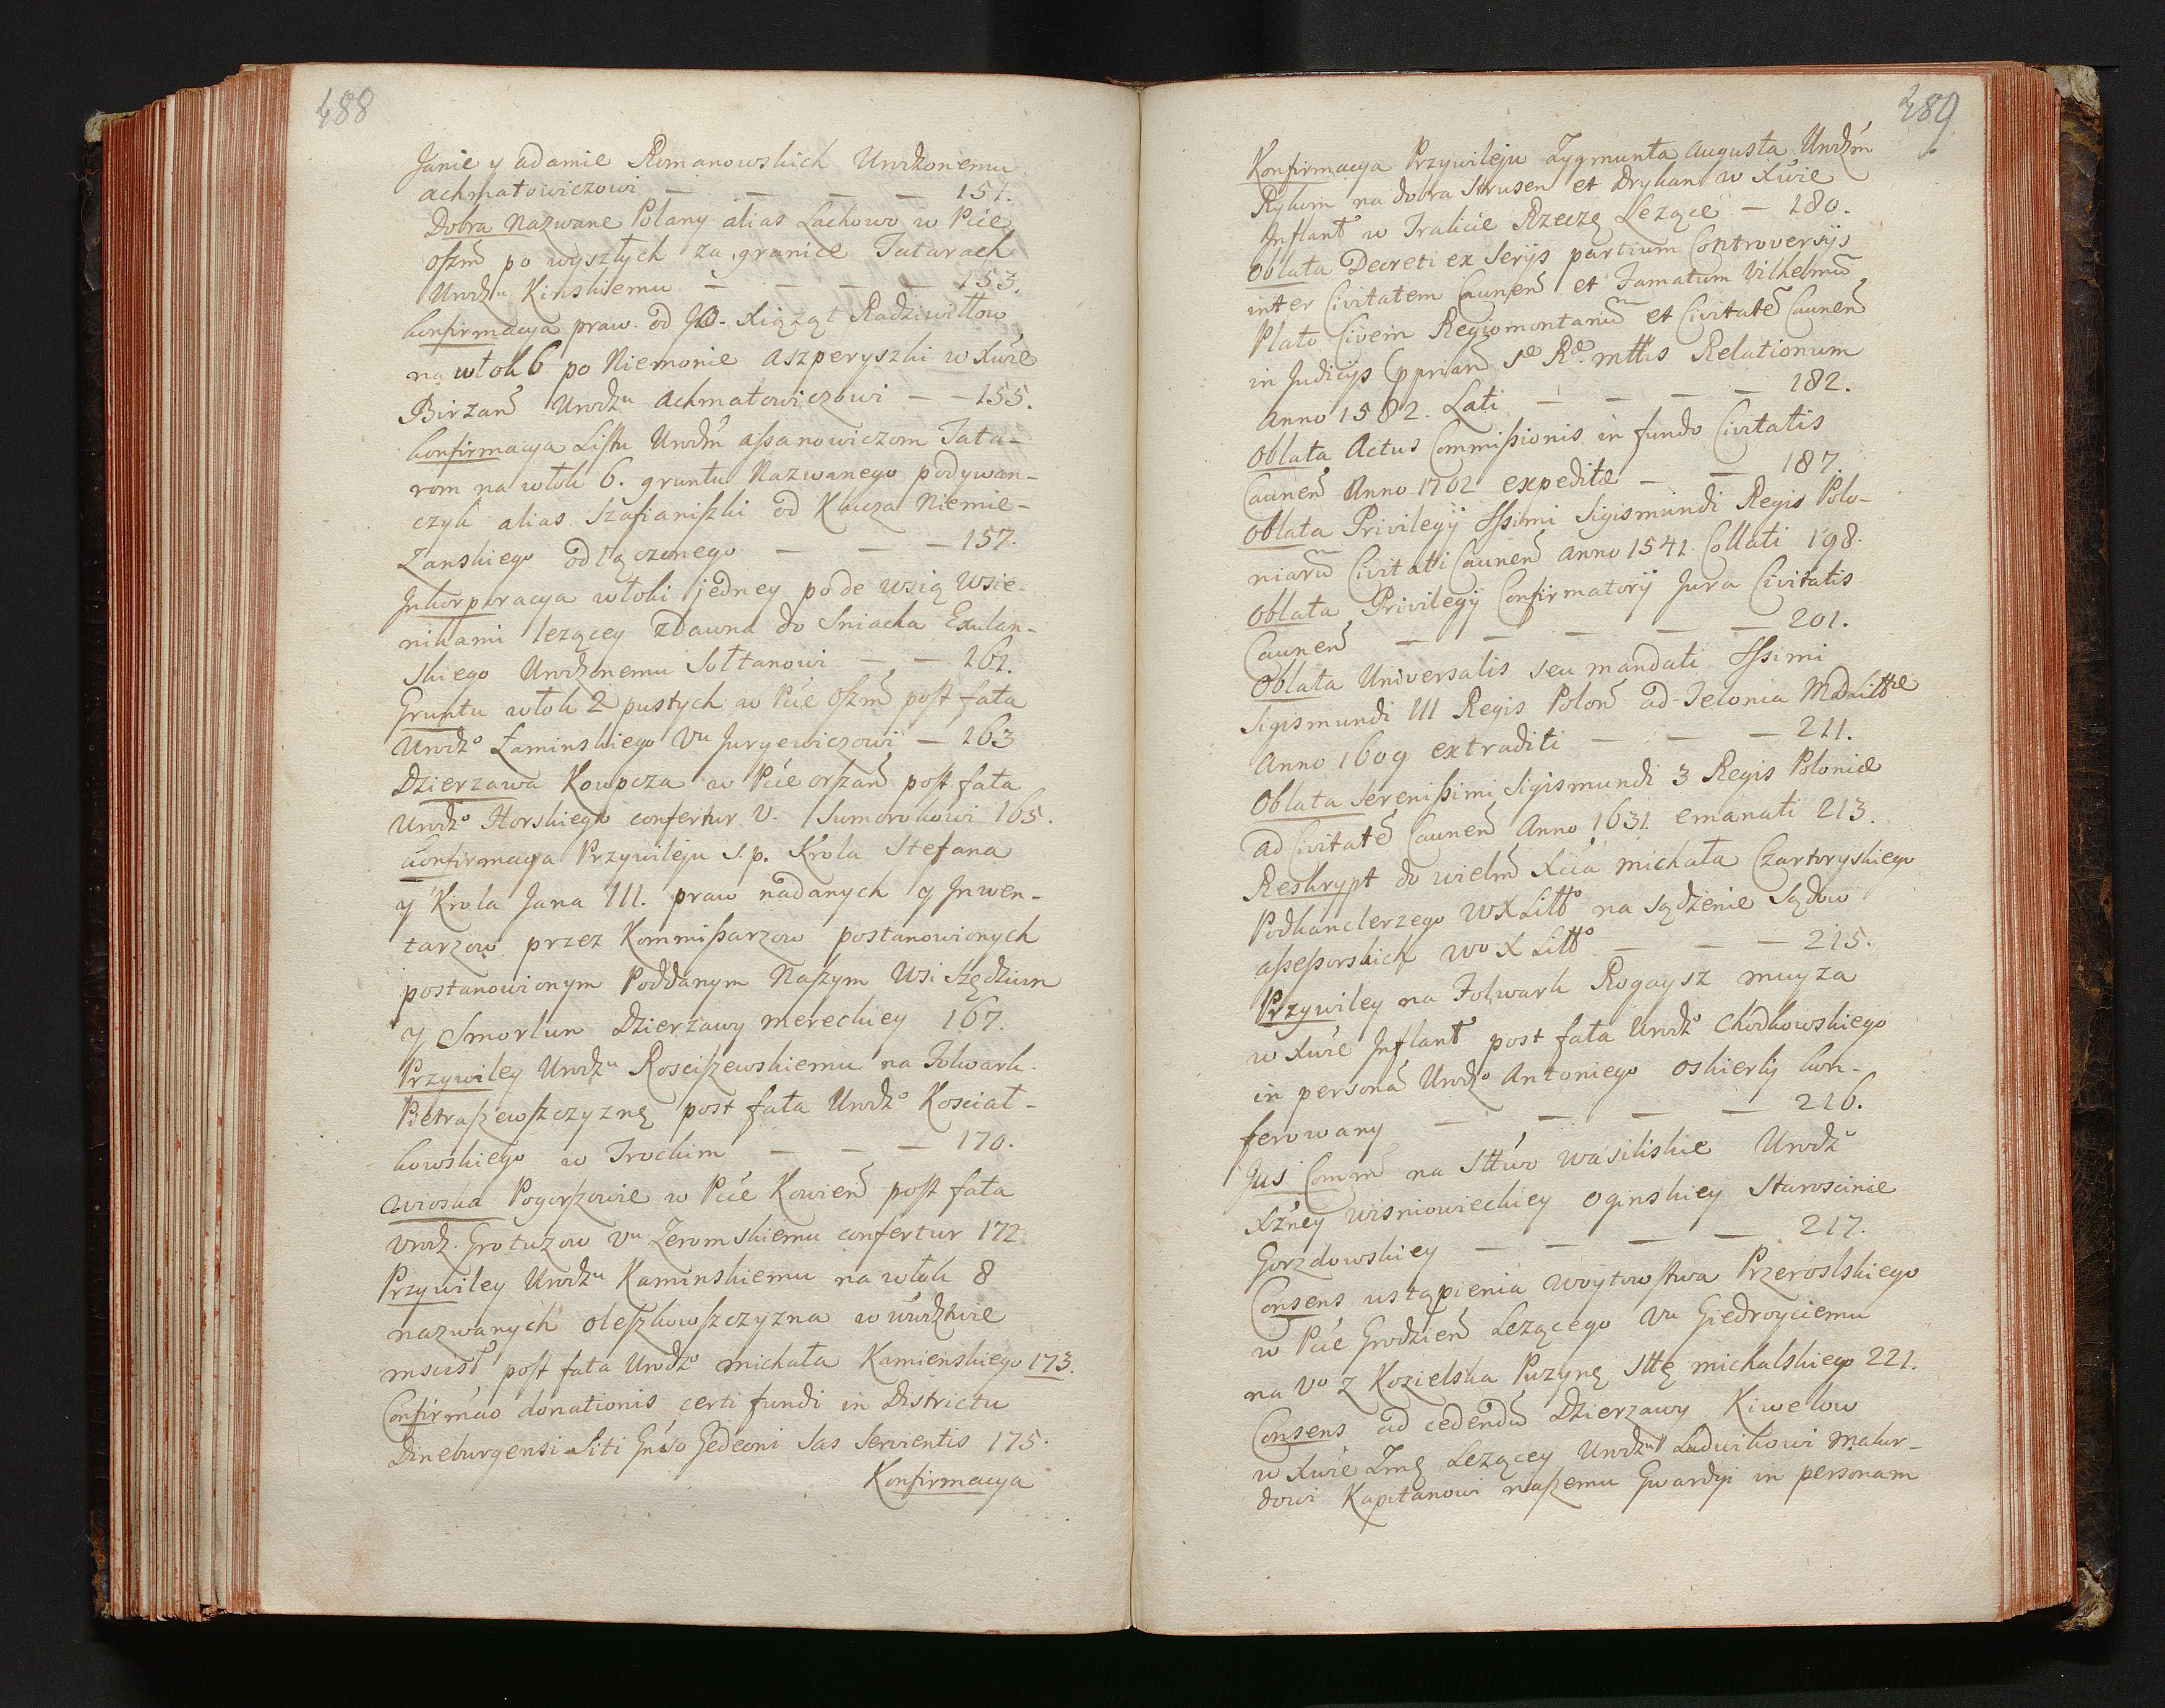 488
Janie y adamie Romanowskich Urodzonemu
achmatowiczowi — — — — 151.
Dobra Nazwane Polany alias Lachowo w Pcie
Oszm po wyszłych za granice Tatarach
Urodzu Kinskiemu — — — — 153.
Confirmacya praw od JO. Xiążąt Radziwiłłow
na włok 6 po Niemonie aszperyszki w Xwie
Birżań Urodzu Achmatowiczowi — — 155.
Confirmacya Listu Urodzm assanowiczom Tata-
rom na włok 6. gruntu Nazwanego podywan-
czyk alias Szafianiszki od Klucza Niemie-
żanskiego odłączonego — — — 157.
Inkorporacya włoki jedney pode wsią Wsie-
nikami leżącey zdawna do Sniacka Exulan-
skiego Urodzonemu Sołtanowi — — 161.
Gruntu włok 2 pustych w Pcie Oszm post fata
Urodzo Łaminskiego Vu Juryewiczowi — 163
Dzierzawa Koupcza w Pcie orszań post fata
Urodzo Horskiego confertur V. Sumorokowi 165.
Confirmacya Przywileju s.p. Krola Stefana
y Krola Jana III. praw nadanych y Inwen-
tarzow przez Kommissarzow postanowionych
postanowionym Poddanym Naszym Wsi Szędziun
y Smorlun Dzierzawy mereckiey 167.
Przywiley Urodzu Rosciszewskiemu na Folwark
Pietraszewszczyznę post fata Urodzo Kosciał-
kowskiego w Trockim — — — 170.
Wioska Pogorszowie w Pcie Kowień post fata
Vrodz. Grotuzow Vu Zeromskiemu confertur 172.
Przywiley Urodzu Kaminskiemu na włok 8
nazwanych oleszkowszczyzna w wwdztwie
mscisł post fata Urodzo michała Kamienskiego 173.
Confirmao donationis certi fundi in Districtu
Dineburgensi Siti Gnso Gedeoni Sas Servientis 175.
Konfirmacya
489
Konfirmacya Przywileju Zygmunta Augusta Urodzm
Rykom na dobra Strusen et Drykan w Xwie
Inflant w Tralicie Rzeczę Leżące — 180.
Oblata Decreti ex Serijs partium Controversijs
inter Civitatem Caunen et Famatum Vilhelmu
Plato Civem Regiomontanu et Civitate Caunen
in Judicijs Cpprian Se Re mttis Relationum
Anno 1582. Lati — — — — 182.
Oblata Actus Commissionis in fundo Civitatis
Caunen Anno 1702 expeditæ — — 187.
Oblata Privilegij Sssimi Sigismundi Regis Polo-
niaru Civitati Caunen anno 1541. Collati 198.
Oblata Privilegij Confirmatorij Jura Civitatis
Caunen — — — — — 201.
Oblata Universalis seu mandati Sssimi
Sigismundi III Regis Polon ad Telonia MDucittæ
Anno 1609 extraditi — — — 211.
Oblata Serenissimi Sigismundi 3 Regis Poloniæ
ad Civitate Caunen Anno 1631 emanati 213.
Reskrypt do wielm Xcia michała Czartoryskiego
Podkanclerzego WXLitto na sądzenie Sądow
assessorskich Wo X Litto — — — 215.
Przywiley na Folwark Rogaysz muyza
w Xwie Inflant post fata Urodzo Chodkowskiego
in persona Urodzo Antoniego Oskierki kon-
ferowany — — — — 216.
Jus Comm na Sttwo wasiliskie Urodz
Xżney wisniowieckiey Oginskiey Staroscinie
Gorzdowskiey — — — — 217.
Consens ustąpienia woytowstwa Przeroslskiego
w Pcie Grodzień Leżącego Vu Giedroyciemu
na Vo z Kozielska Puzynę Sttę michalskiego 221.
Consens ad cedendu Dzierzawy Kiwelow
w Xwie Zmę Leżącey Urodzu Ludwikowi Matur-
dowi Kapitanowi naszemu Gwardyi in personam